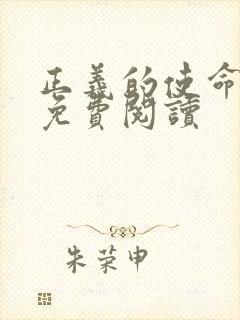 正義的使命
免費閱讀
朱荣申